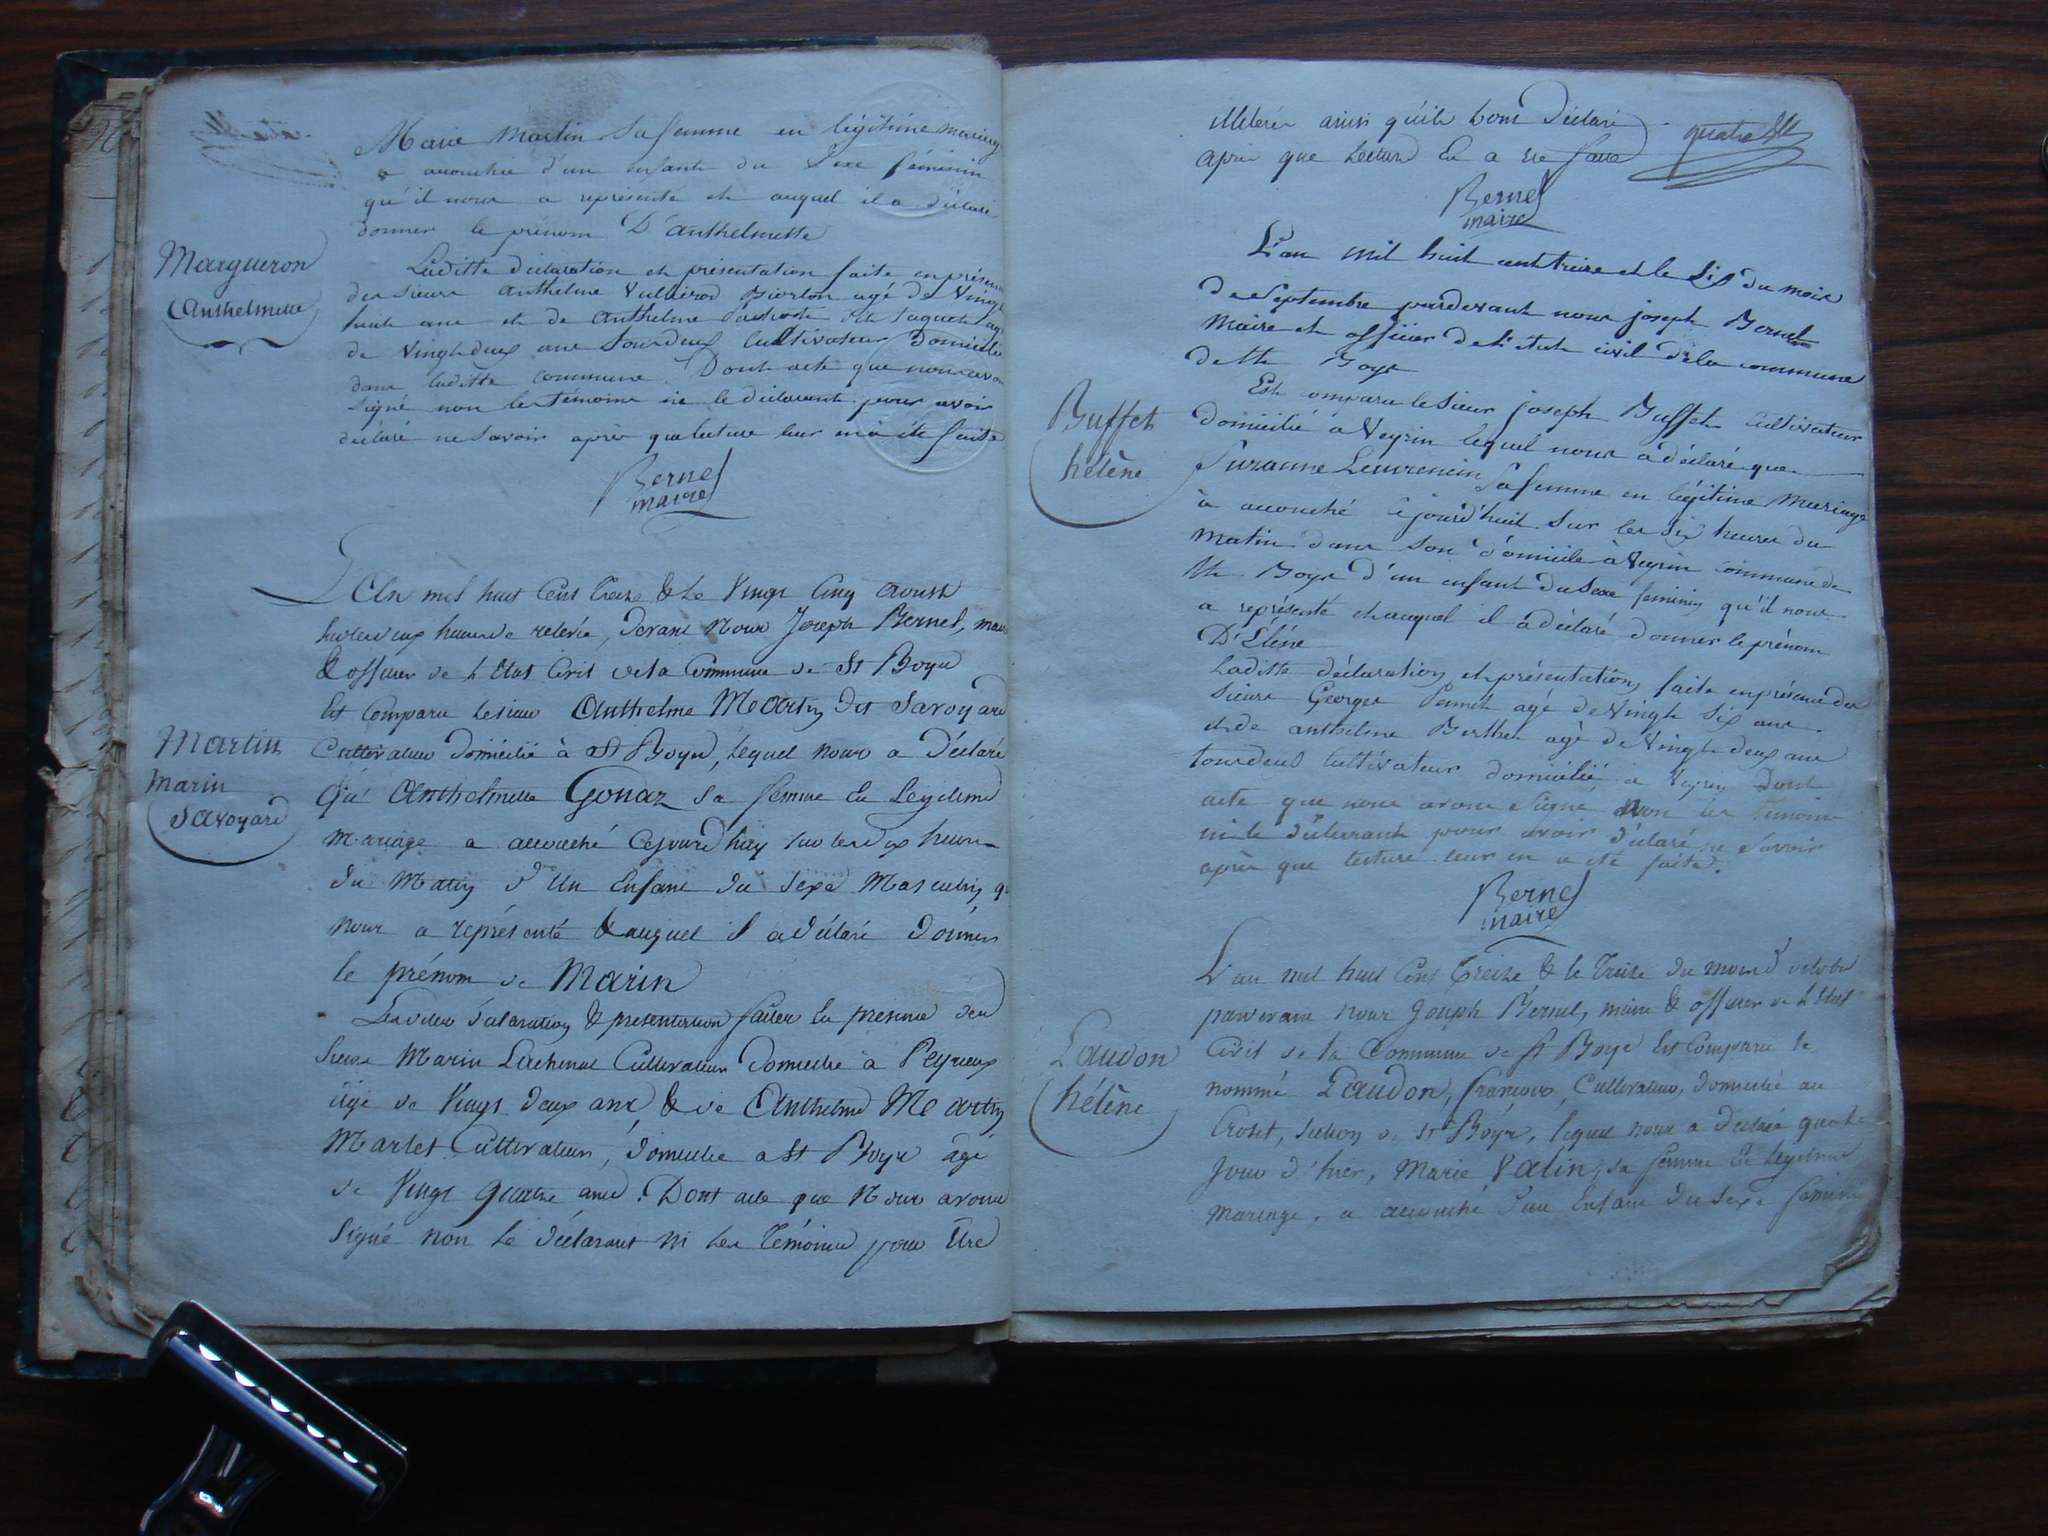 Marie Martin sa femme en légitime mariag
a accouchée d'un enfant du sexe féminin
qu'il nous a représenté et auquel il a déclaré
donner le prénom D'anthelmette
Margueron
Anthelmette
Laditte déclaration et présentation faite en présence
des sieurs anthelme Vulliérod Bierton agé de Vingt
huit ans et de anthelme dit Taquet agé
de vingt deux ans tous deux Cultivateur Domicilié
dans laditte commune. Dont acte que nous avon
signé non les témoins ni le déclarant pour avoir
déclaré ne savoir après que lecture leur en à été faite
Bernel
maire
L'An mil huit Cent Treize & le Vingt Cinq Aoust
sur les deux heures de relevée, devant Nous Joseph Bernel, mair
& officier de L'Etat Civil de la Commune de St Boys
Est Comparu le sieur Anthelme Martin dit Savoyard
Martin
Marin
Savoyard
Cultivateur domicilié à St Boys, lequel nous a Déclaré
Qu' Anthelmette Gonaz sa femme En Legitime
Mariage a accouché Cejourd'huy sur les deux heures
du Matin d'Un Enfant du sexe Masculin q
nous a représenté & auquel il a déclaré donner
le prénom de Marin
Les dites déclaration & présentation faites En présence des
sieurs Marin Lachenal Cultivateur Domicilié à Peyrieux
âgé de Vingt deux ans & de Anthelme Martin
Marlet Cultivateur, domicilié a St Boys âgé
de Vingt Quatre ans. Dont acte que Nous avons
signé non le déclarant ni les Témoins pour Etre
illeterés ainsi qu'ils l'ont Déclaré
après que Lecture En a été faite
quatre
Bernel
maire
L'an mil huit cent treize et le Six du mois
de Septembre pardevant nous joseph Bernel
Maire et officier de l'état civil de la commune
de St Boys
Buffet
hélène
Est comparu le Sieur joseph Buffet cultivateur
domicilié à Veyrin lequel nous a déclaré que
Suzanne Leuvrencin Sa femme en légitime Mariage
à accouché cejourd'huit sur les six heures du
matin dans son domicile à Veyrin commune de
St Boys d'un enfant du sexe feminin qu'il nous
a représenté et auquel il a déclaré donner le prénom
D'Eléne
Laditte déclaration et présentation faite en présence des
sieurs George Pennet agé de Vingt Six ans
et de anthelme Berthet agé de Vingt deux ans
tous deux Cultivateur domicilié à Veyrin Dont
acte que nous avons signé non les Témoins
ni le déclarant pour avoir déclaré ne Savoir
après que lecture leur en a été faite.
Bernel
maire
L'an mil huit Cent Treize & le Treize du mois d'octobre
pardevant nous Joseph Bernel, maire & officier de l'Etat
Civil de la Commune de St Boys Est Comparu le
Laudon
hélène
nommé Laudon, françois, Cultivateur, domicilié au
Crozet, section de St Boys, lequel nous a déclaré que le
Jour d'hier, Marie Valin, sa femme En Legitime
Mariage, a accouché d'un Enfant du sexe feminin